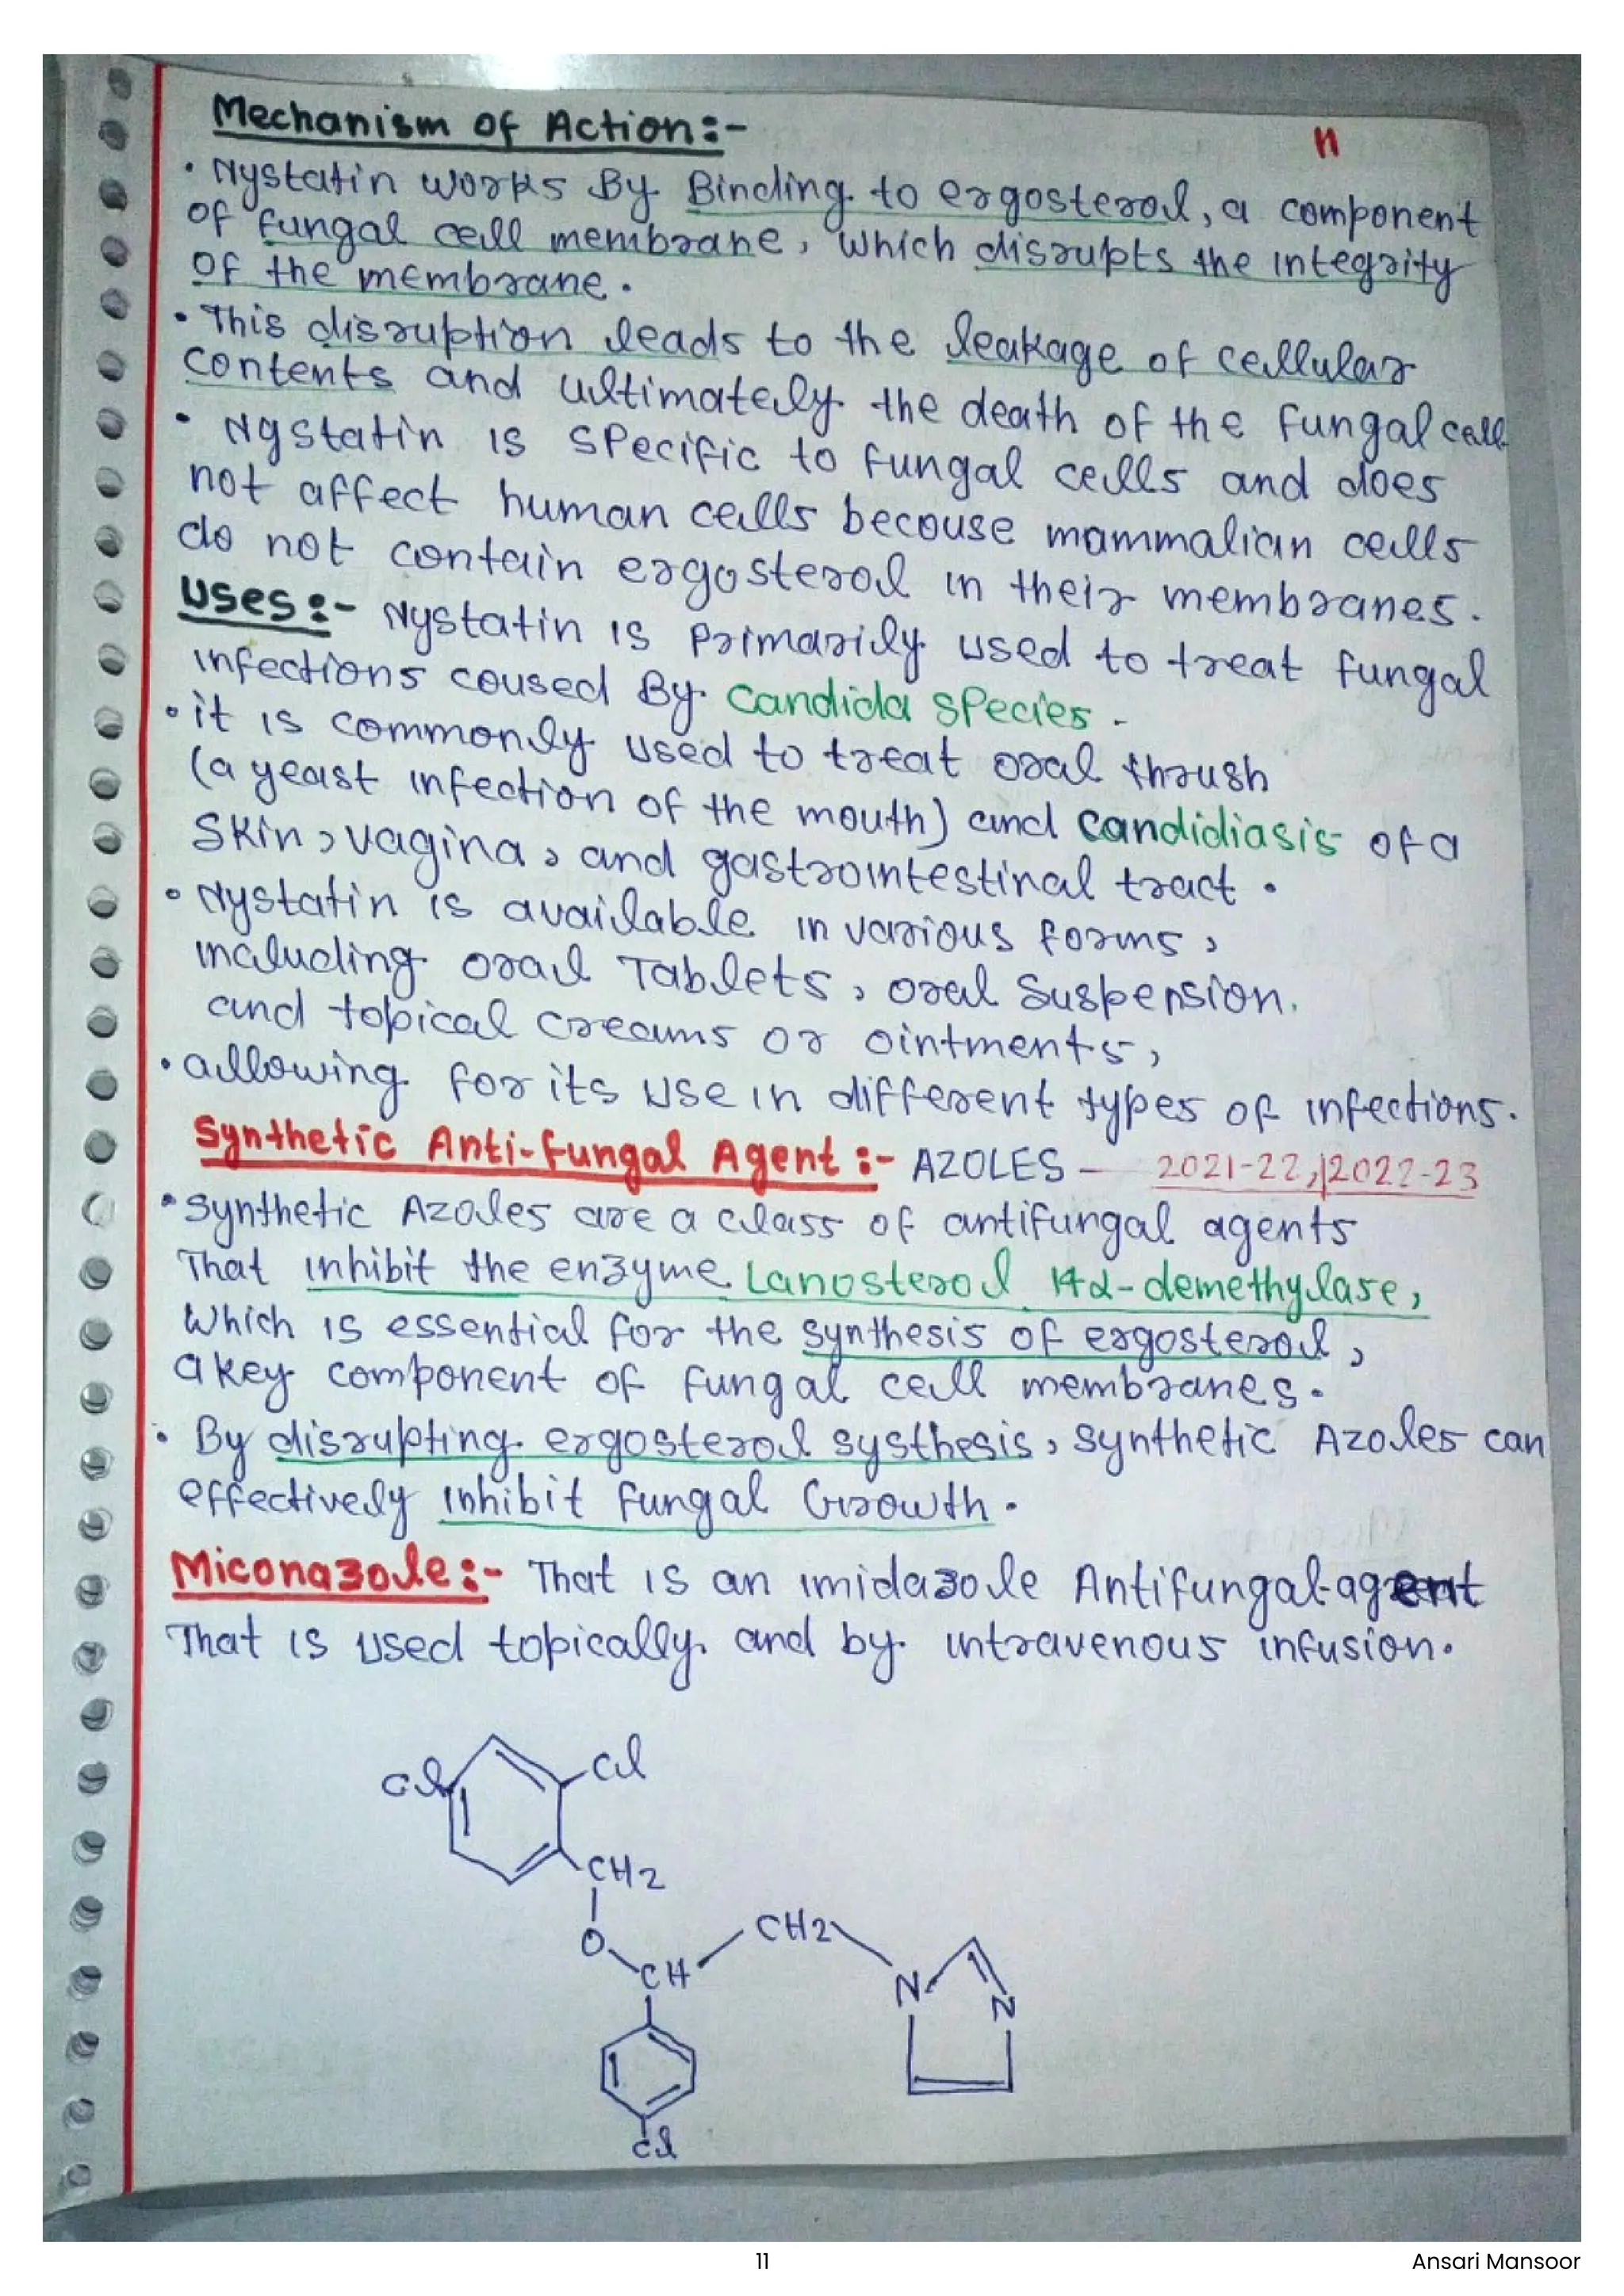 Mechanism of Action:-
11
• Nystatin works By Binding to ergosterol, a component
of fungal cell membrane, which disrupts the integrity
of the membrane.
• This disruption leads to the leakage of cellular
contents and ultimately the death of the fungal cell
• Nystatin is specific to fungal cells and does
not affect human cells becouse mammalian cells
do not contain ergosterol in their membranes.
Uses:- Nystatin is Primarily used to treat fungal
infections coused By Candida species.
• it is commonly used to treat oral thrush
(a yeast infection of the mouth) and candidiasis of a
skin, vagina, and gastrointestinal tract.
• Nystatin is available in various forms,
including oral Tablets, oral suspension.
and topical creams or ointments,
• allowing for its use in different types of infections.
Synthetic Anti-fungal Agent:- AZOLES - 2021-22, 2022-23
• Synthetic Azoles are a class of antifungal agents
That inhibit the enzyme Lanosterol 14α-demethylase,
Which is essential for the synthesis of ergosterol,
a key component of fungal cell membranes.
• By disrupting ergosterol systhesis, synthetic Azoles can
effectively inhibit fungal Growth.
Miconazole:- That is an imidazole Antifungal agent
That is used topically and by intravenous infusion.
Cl
Cl
CH2
O
CH
CH2
N
N
Cl
11
Ansari Mansoor